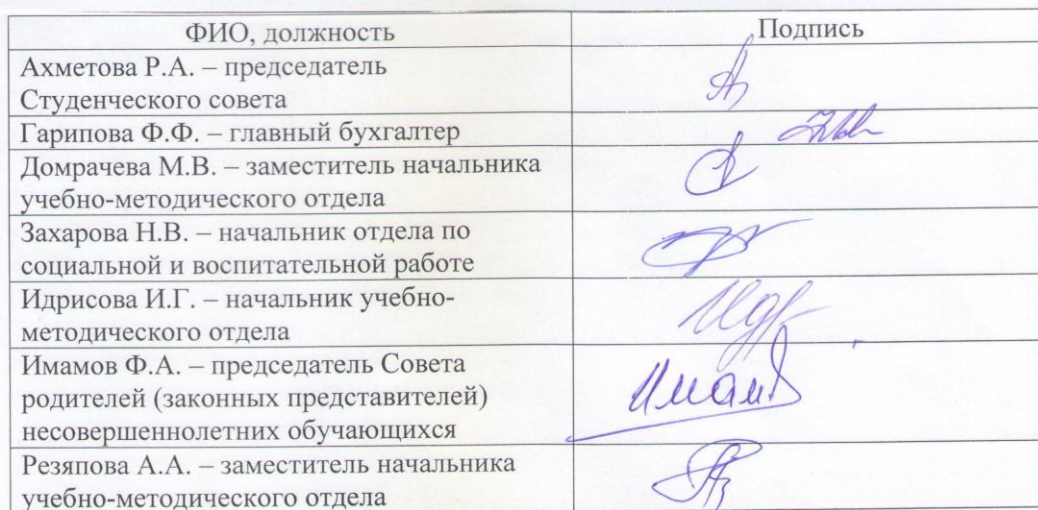 ФИО, должность Подпись
Ахметова Р.А. – председатель
Студенческого совета
Гарипова Ф.Ф. – главный бухгалтер
Домрачева М.В. – заместитель начальника
учебно-методического отдела
Захарова Н.В. – начальник отдела по
социальной и воспитательной работе
Идрисова И.Г. – начальник учебно-
методического отдела
Имамов Ф.А. – председатель Совета
родителей (законных представителей)
несовершеннолетних обучающихся
Резяпова А.А. – заместитель начальника
учебно-методического отдела